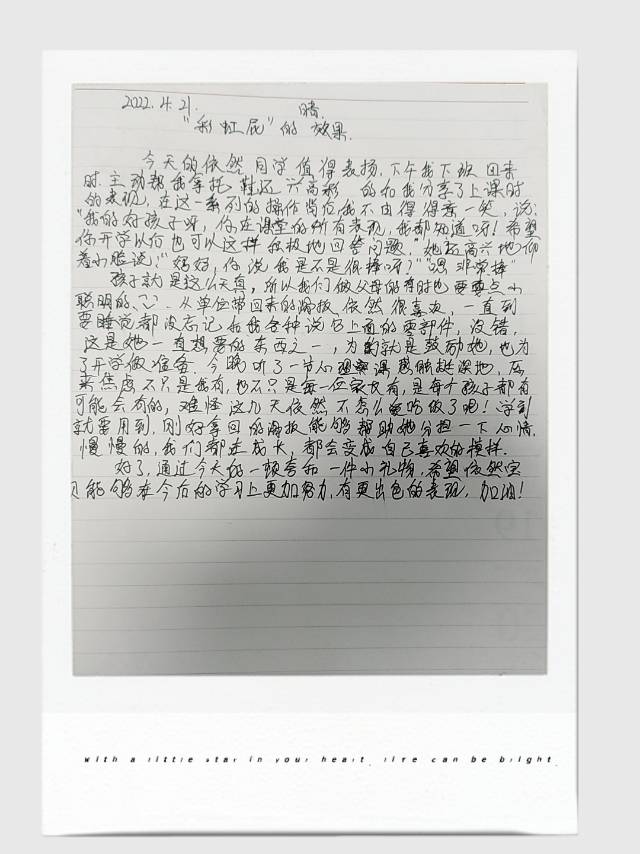 2022.4.21. 晴.
"彩虹屁"的效果.
今天的依然同学值得表扬,下午我下班回来
时.主动帮我拿拖鞋还兴高彩 的和我分享了上课时
的表现,在这一系列的操作背后,我不由得得意一笑,说:
"我的好孩子呀,你在课堂的所有表现,我都知道呀!希望
你开学以后也可以这样积极地回答问题."她超高兴地仰
着小脸说:"妈妈,你说我是不是很棒呀?""嗯 非常棒"
孩子就是这么天真,所以我们做父母的有时也要耍点小
聪明的. 从单位带回来的滑板依然很喜欢,一直到
要睡觉都没忘记和我各种说书上面的零部件,没错,
这是她一直想要的东西之一,为的就是鼓励她,也为
了开学做准备.今晚听了一节心理 课感触挺深地,原
来焦虑不只是我有,也不只是每一位家长有,是每个孩子都有
可能会有的,难怪这几天依然不怎么 吃饭了呢!学到
就要用到,刚好拿回的滑板能够帮助她分担一下心情.
慢慢的,我们都在成长,都会变成自己喜欢的模样.
好了,通过今天的一顿夸和一件小礼物,希望依然宝
贝能够在今后的学习上更加努力,有更出色的表现,加油!
with a little star in your heart, life can be bright.